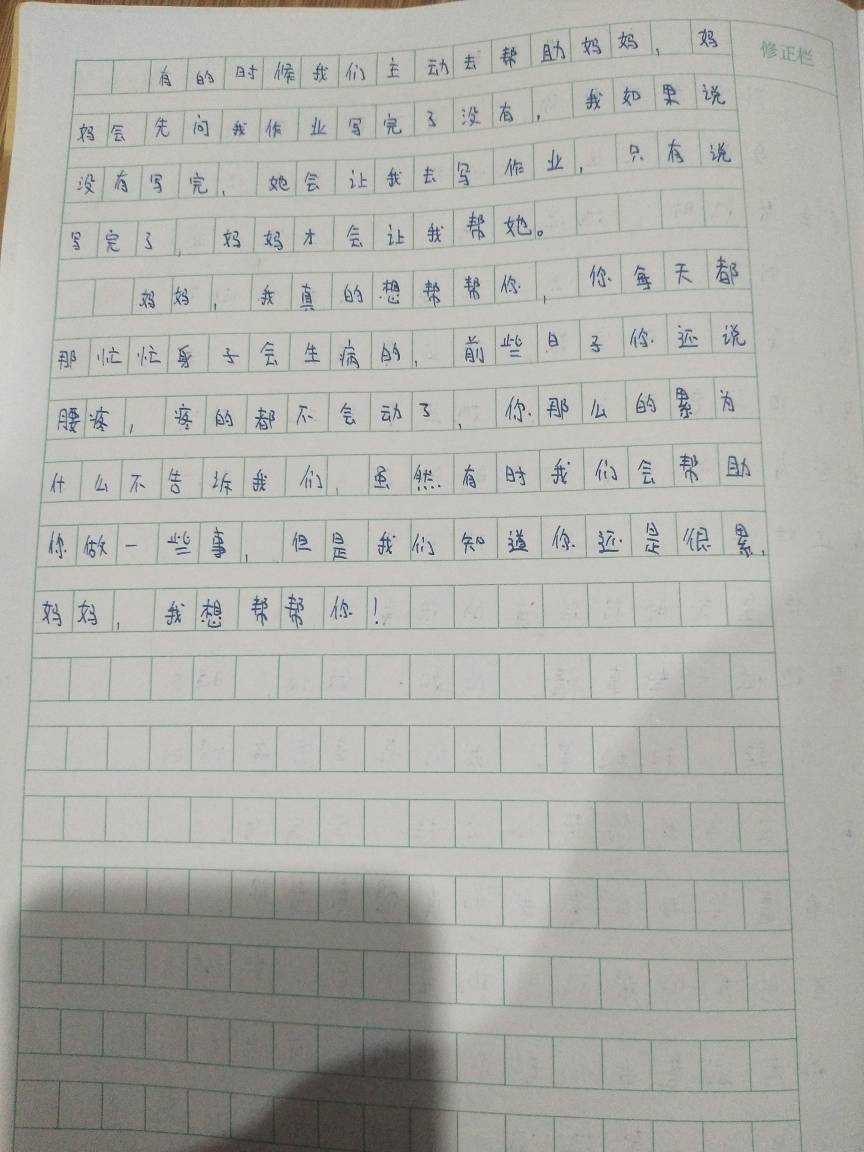 修正栏
有的时候我们主动去帮助妈妈，妈
妈会先问我作业写完了没有，我如果说
没有写完，她会让我去写作业，只有说
写完了，妈妈才会让我帮她。
妈妈，我真的想帮帮你，你每天都
那忙忙身子会生病的，前些日子你还说
腰疼，疼的都不会动了，你那么的累为
什么不告诉我们，虽然有时我们会帮助
你做一些事，但是我们知道你还是很累，
妈妈，我想帮帮你！